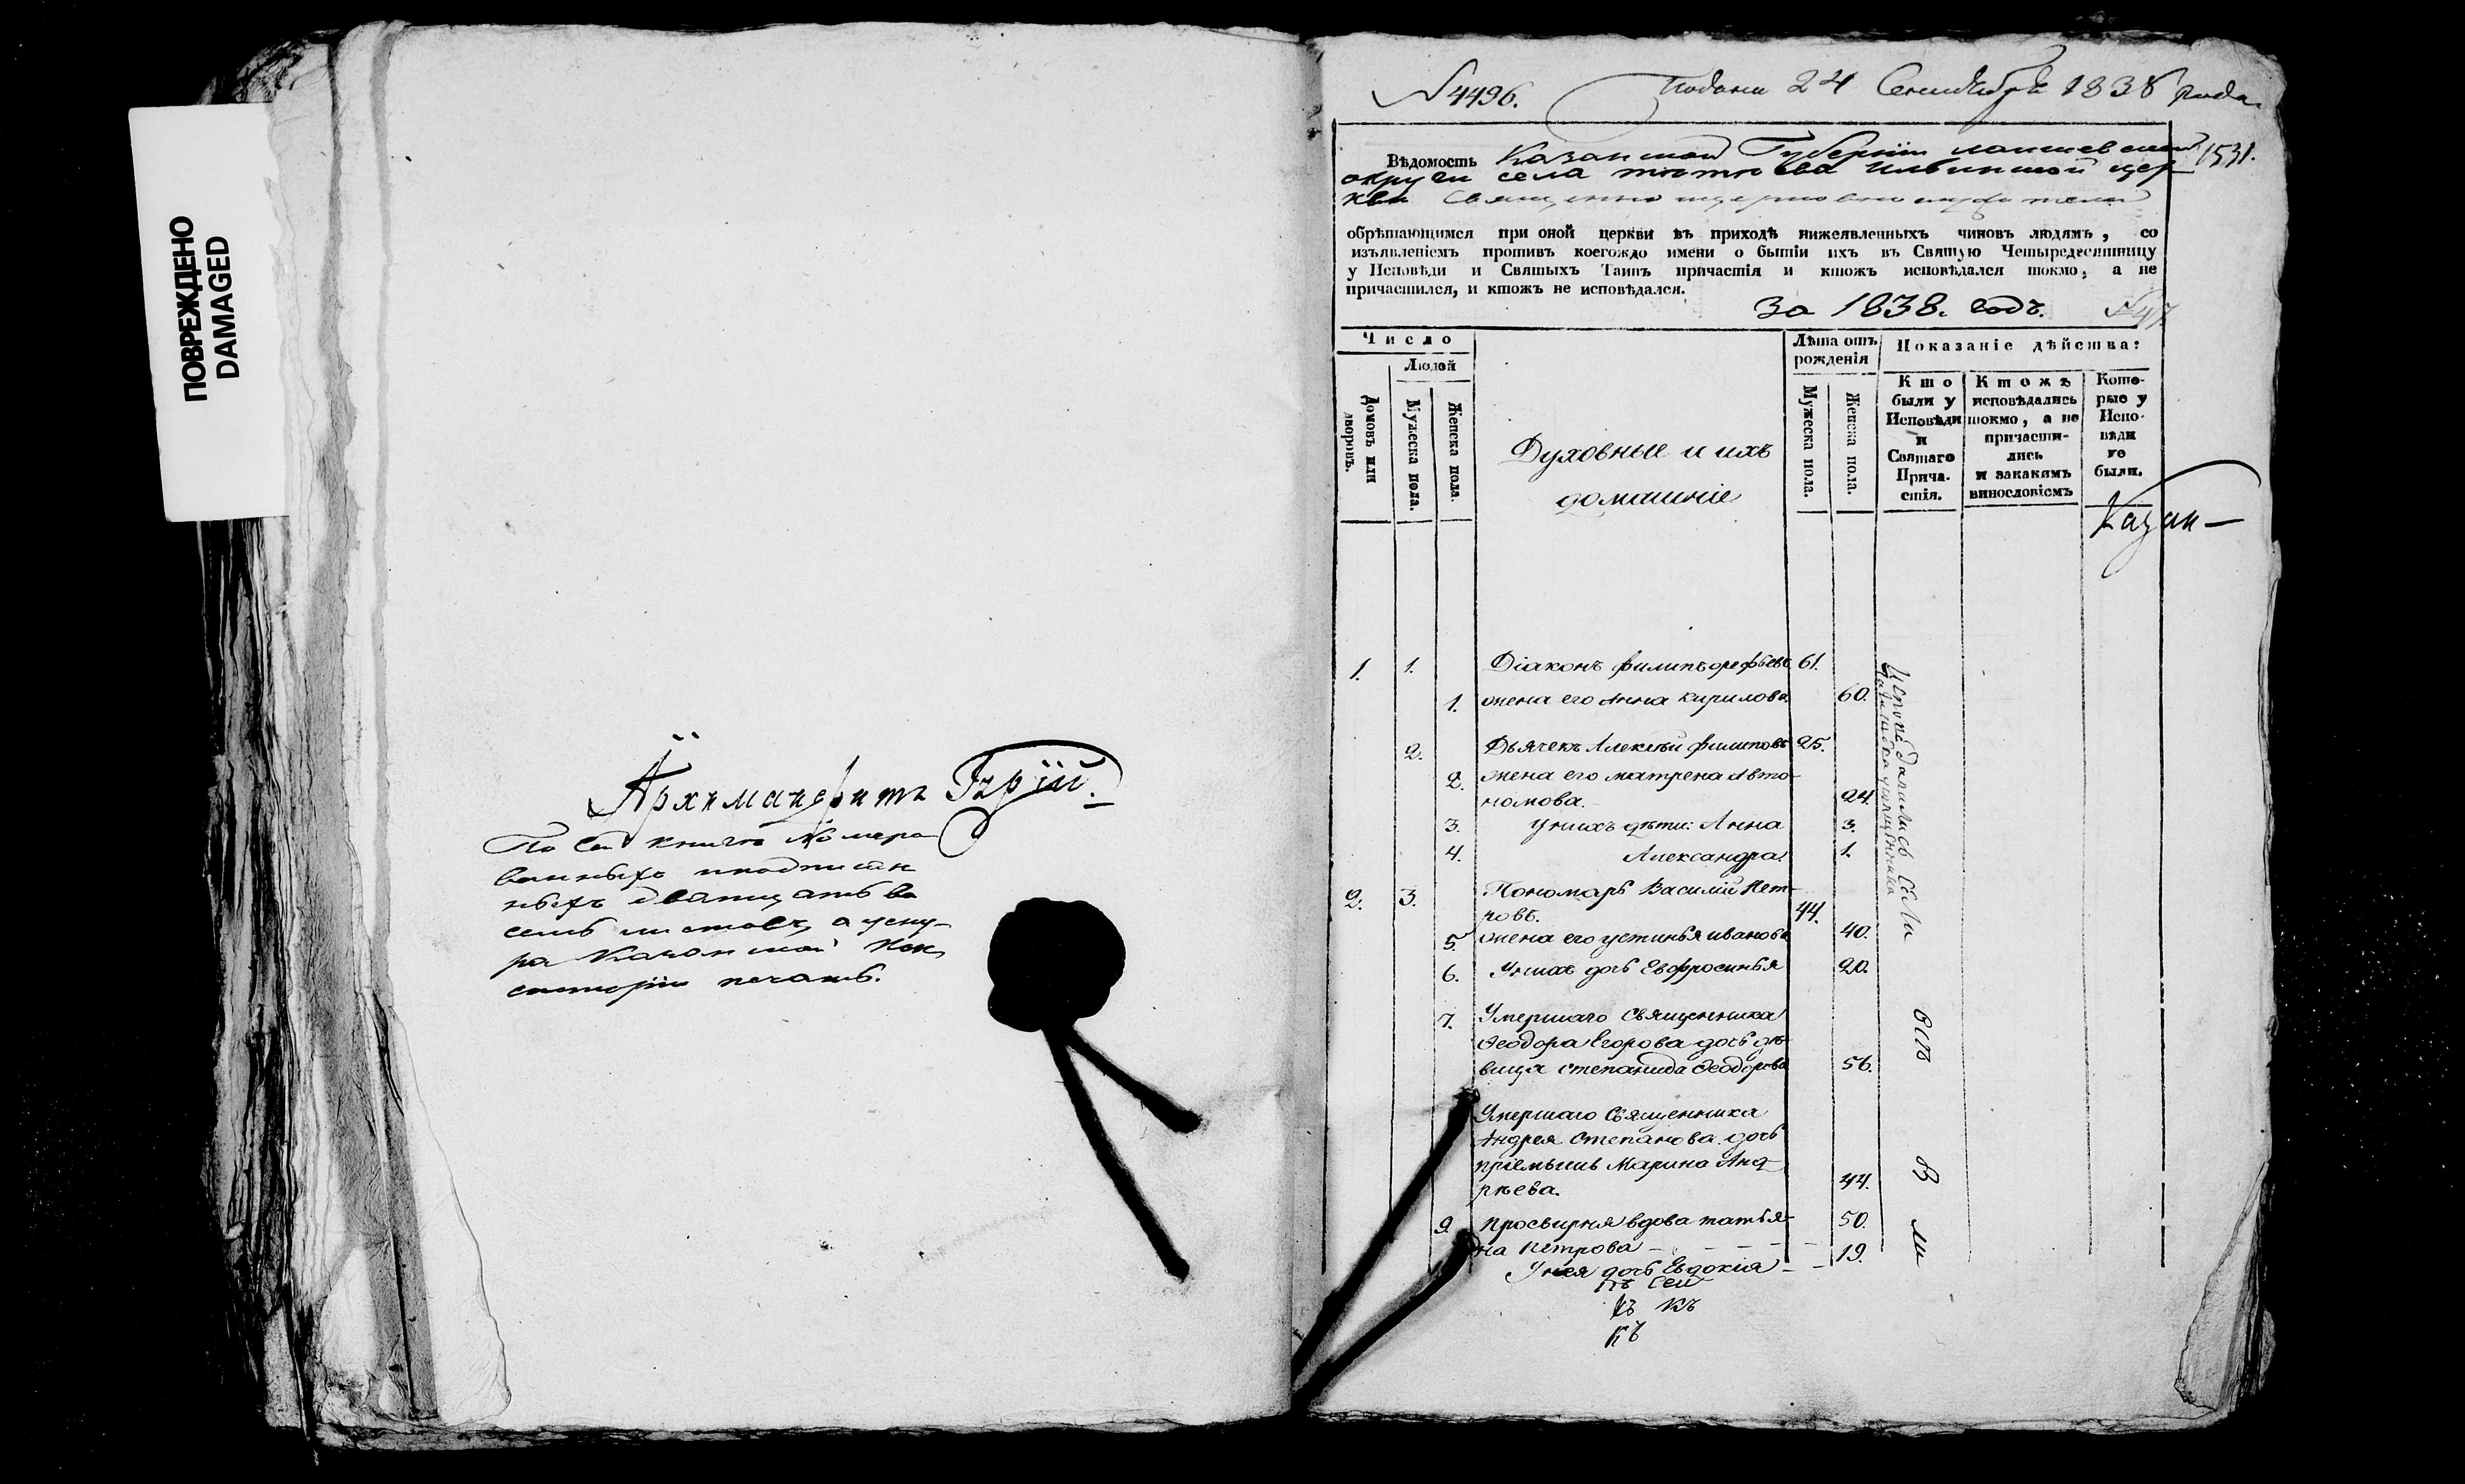 ПОВРЕЖДЕНО
DAMAGED
Архимандритъ Гурій.
По сей книгѣ номеро
ванныхъ и подписан
ныхъ дватцать во
семь листовъ, а у сну-
ра Казанской Кон
систоріи печать.
№ 4496. Подана 24 Сентября 1838 года
1531.
Вѣдомость Казанской Губерніи лаишевской
округи села тютюева Ильинской цер
кви священно и церковнослужители
обрѣтающимся при оной церкви въ приходѣ нижеявленныхъ чиновъ людямъ, со
изъявленіемъ противъ коегождо имени о бытіи ихъ въ Святую Четыредесятницу
у Исповѣди и Святыхъ Таинъ причастія и ктожъ исповѣдался токмо, а не
причастился, и ктожъ не исповѣдался.
за 1838. годъ. № 47.
Число
Людей
Домовъ или дворовъ.
Мужеска пола.
Женска пола.
Духовные и ихъ
домашніе
Лѣта отъ рожденія
Мужеска пола.
Женска пола.
Показаніе дѣйства:
Кто были у Исповѣди и Святаго Прича-стія.
Ктожъ исповѣдались токмо, а не причасти-лись и закакимъ винословіемъ
Кото-рые у Испо-вѣди не были.
Казан-
1. 1. Діаконъ филипъ орефьевъ 61.
1. жена его Анна кирилова 60.
2. Дьячекъ Алексѣй филиповъ 25.
2. жена его матрена Авто-
номова. 24.
3. у нихъ дѣти: Анна 3.
4. Александра. 1.
2. 3. Пономарь Василій Пет-
ровъ. 44.
5. жена его устинья иванова 40.
6. У нихъ дочь Евфросинья 20.
7. Умершаго Священника
Феодора Егорова дочь дѣ-
вица степанида Феодорова 56.
Умершаго Священника
Андрея Степанова дочь
пріемышъ Марина Анд-
рѣева. 44.
9. просвирня вдова татья- 50.
на Петрова
У нея дочь Евдокія 19.
Исповѣдались Сѣли
всѣ